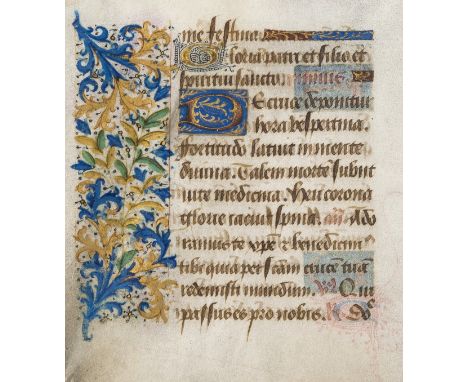 me festina.
Gloria patri et filio et
spiritui sancto. ymnus.
De cruce deponitur
hora vespertina.
fortitudo latuit in mente
divina. Talem morte subiit
vite medicina. Heu corona
glorie iacuit supina. Ado
ramus te xpe & benedicim
tibi quia per scam crucem tuā
redemisti mundum. Qui
passus es pro nobis. Do